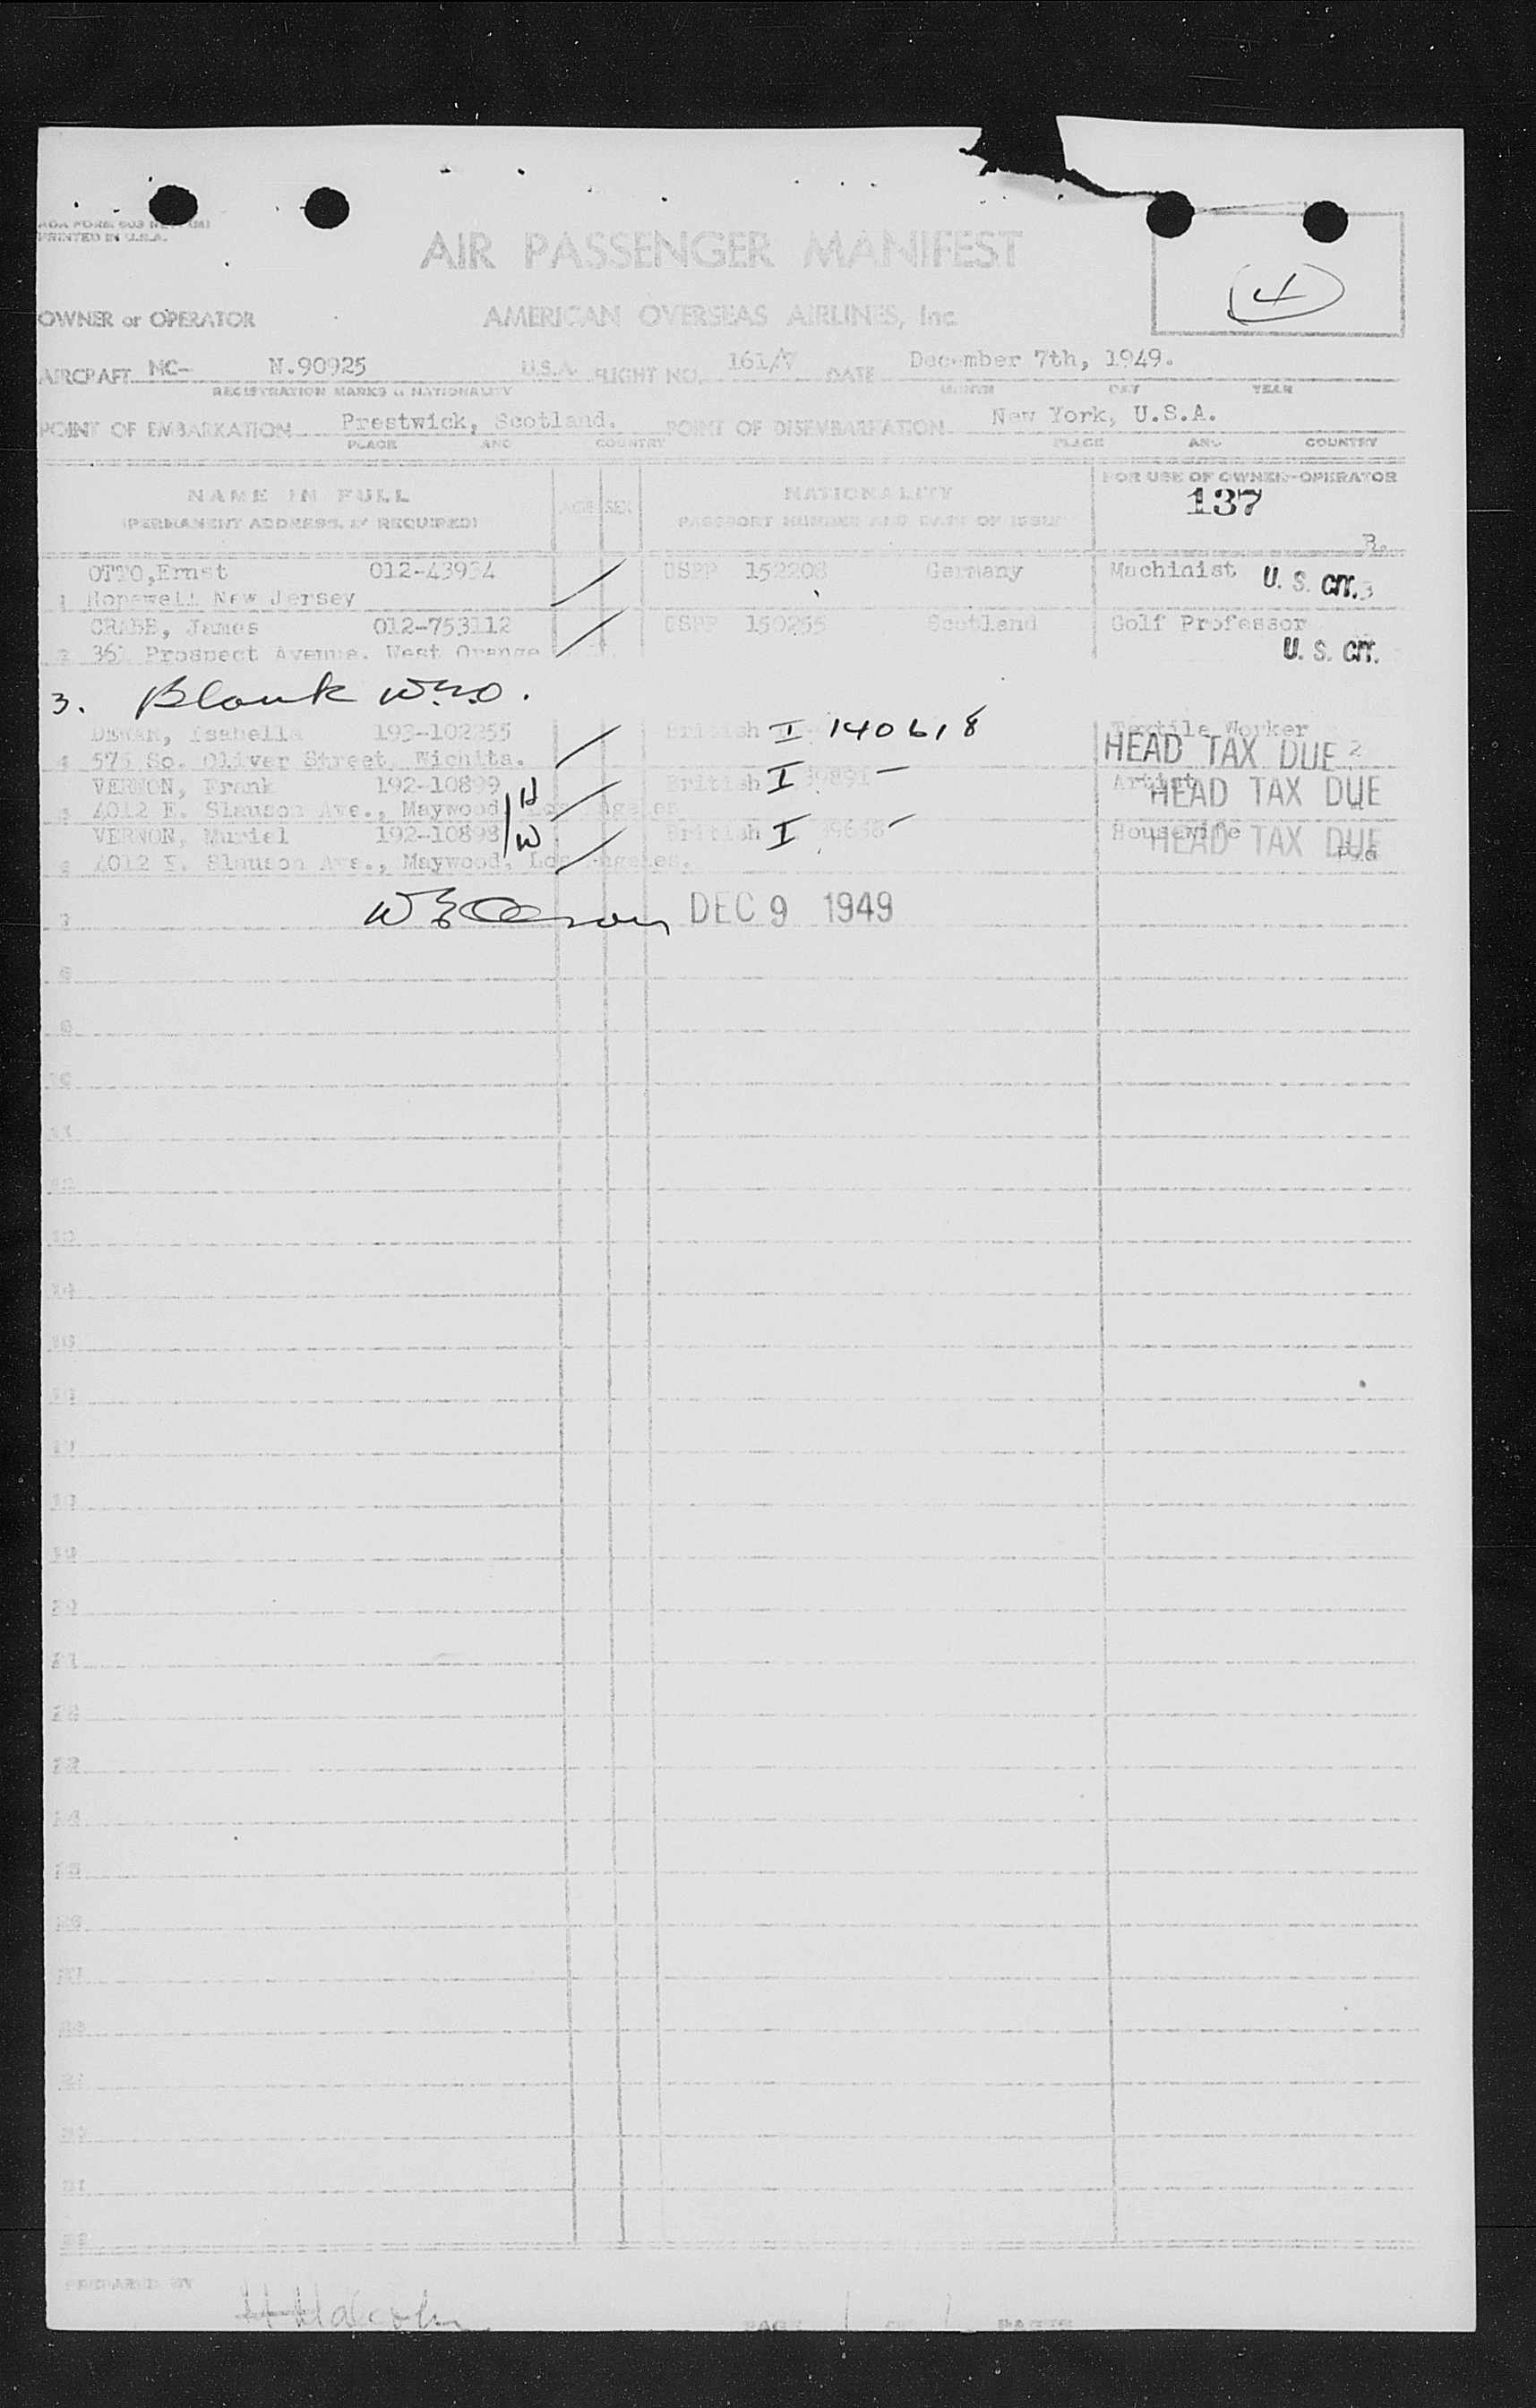 PRINTED IN U.S.A.
AIR PASSENGER MANIFEST
4
OWNER or OPERATOR AMERICAN OVERSEAS AIRLINES, Inc
AIRCRAFT NC- N.90925 U.S.A. FLIGHT NO. 161/7 DATE December 7th, 1949.
REGISTRATION MARKS & NATIONALITY MONTH DAY YEAR
POINT OF EMBARKATION Prestwick, Scotland. POINT OF DISEMBARKATION New York, U.S.A.
PLACE AND COUNTRY PLACE AND COUNTRY
NAME IN FULL AGE SEX NATIONALITY FOR USE OF OWNER-OPERATOR
(PERMANENT ADDRESS, IF REQUIRED) PASSPORT NUMBER AND DATE OF ISSUE 137
OTTO, Ernst 012-43934 USPP 152208 Germany Machinist U. S. CIT.
1 Hopewell New Jersey
CRABB, James 012-753112 USPP 150255 Scotland Golf Professor
2 361 Prospect Avenue. West Orange U. S. CIT.
3. Blank
Isabella 193-102255 British I 140618 Textile Worker
4 575 So. Oliver Street, Wichita. HEAD TAX DUE 2
VERNON, Frank 192-10899 H British I Artist
5 4012 E. Slauson Ave., Maywood Los Angeles HEAD TAX DUE
VERNON, Muriel 192-10898 W British I Housewife
6 4012 E. Slauson Ave., Maywood, Los Angeles. HEAD TAX DUE
7 DEC 9 1949
8
9
10
11
12
13
14
15
16
17
18
19
20
21
22
23
24
25
26
27
28
29
30
31
32
PREPARED BY
H Malcolm PAGE 1 OF 1 PAGES